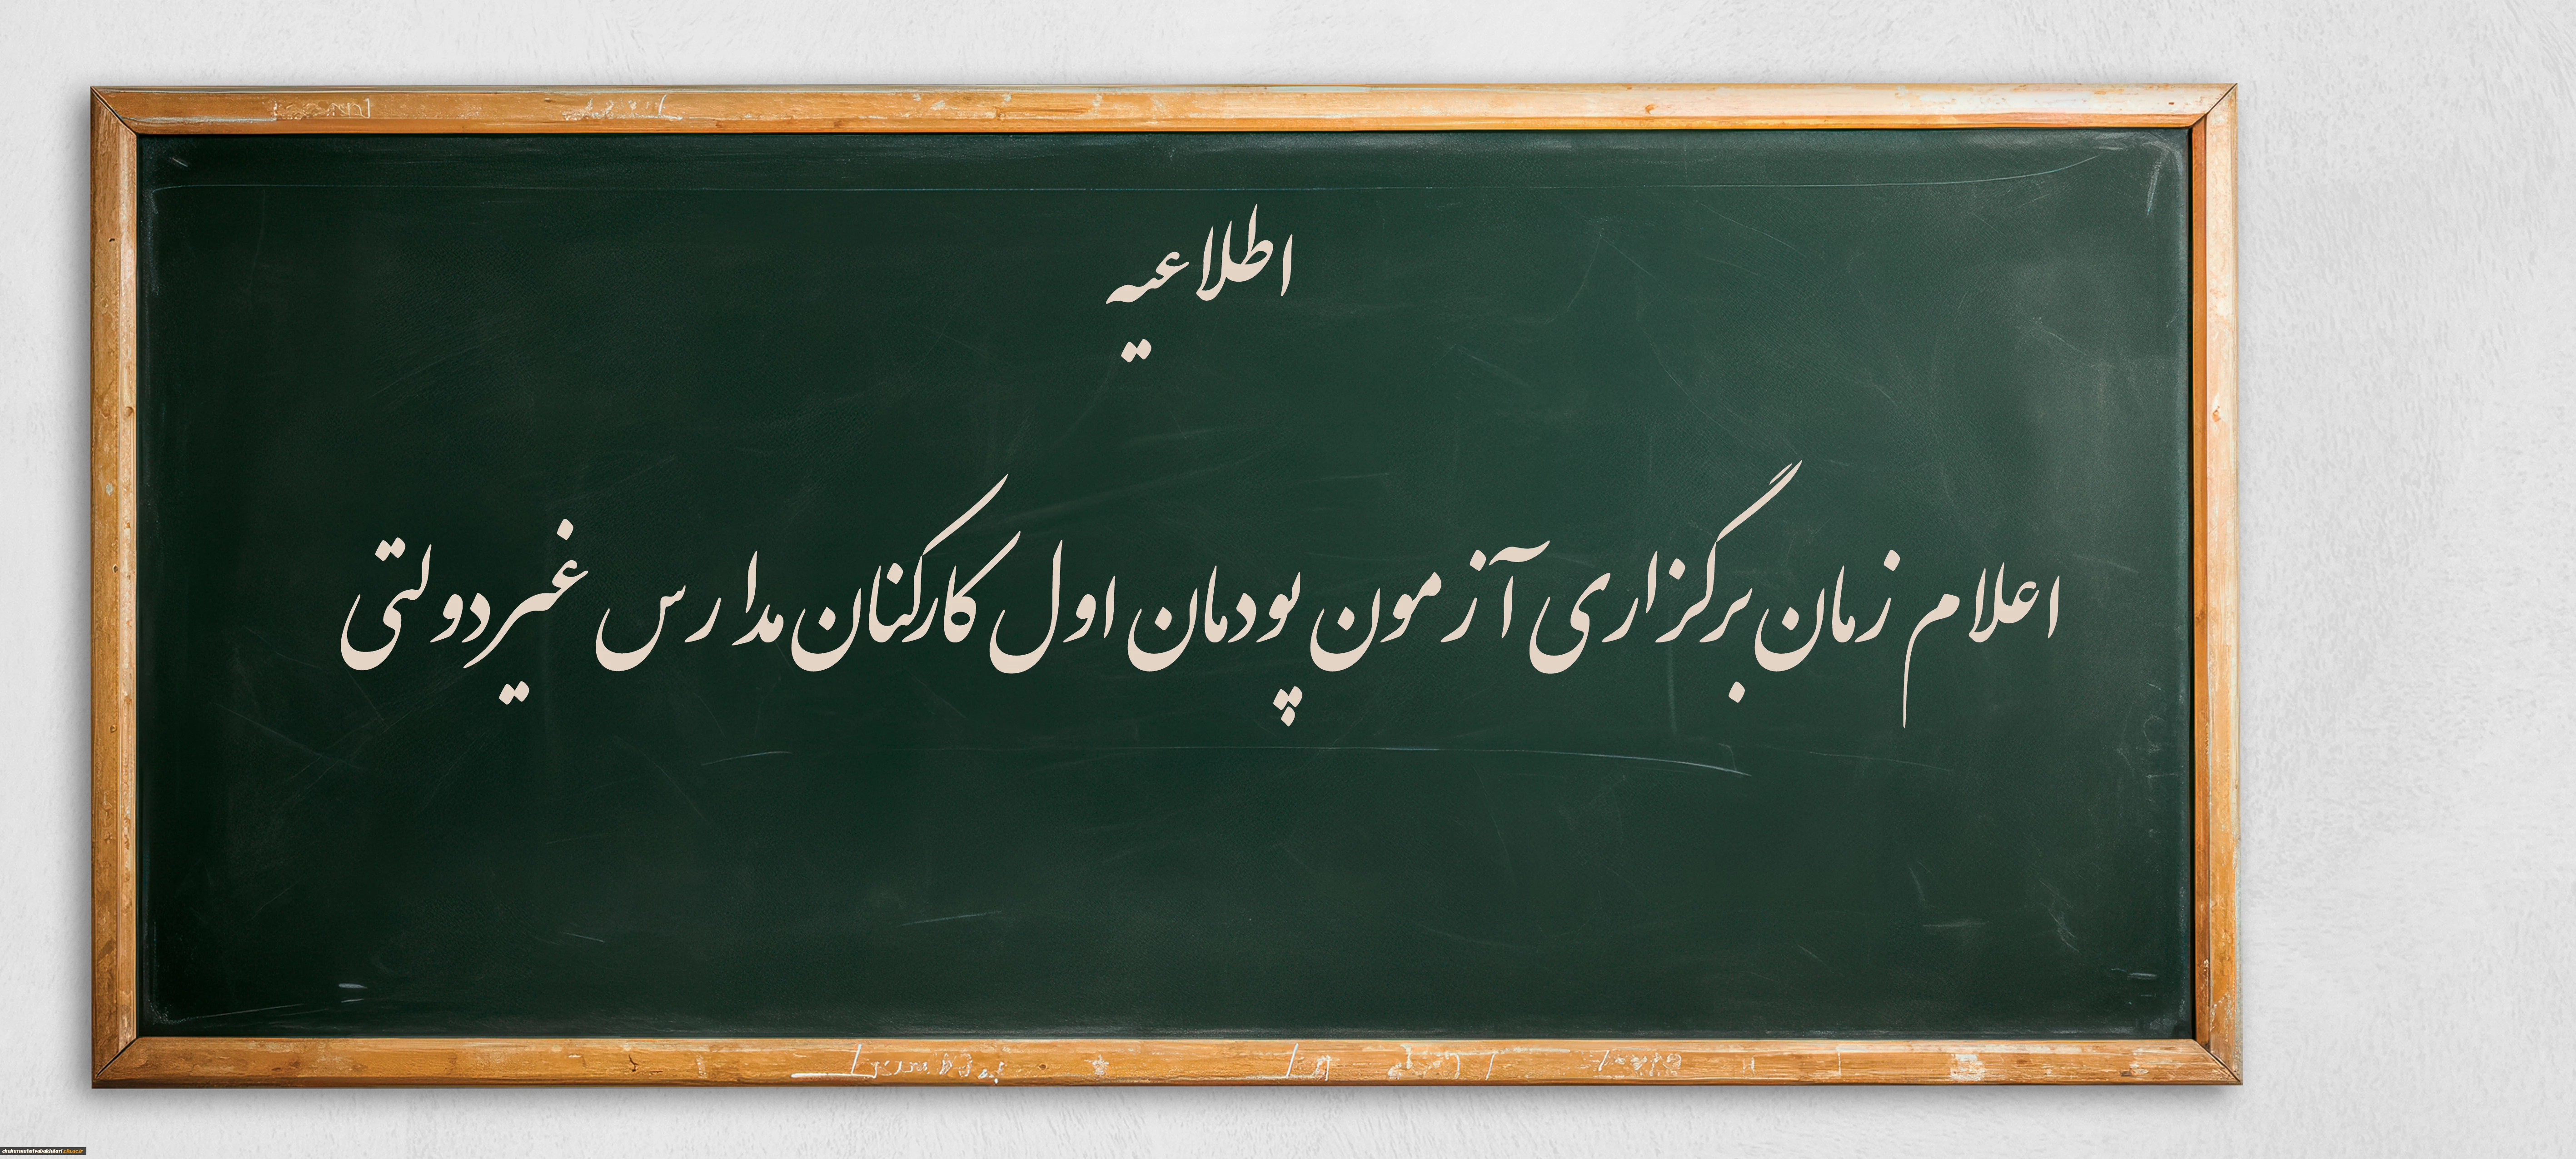 اطلاعیه
اعلام زمان برگزاری آزمون پودمان اول کارکنان مدارس غیردولتی